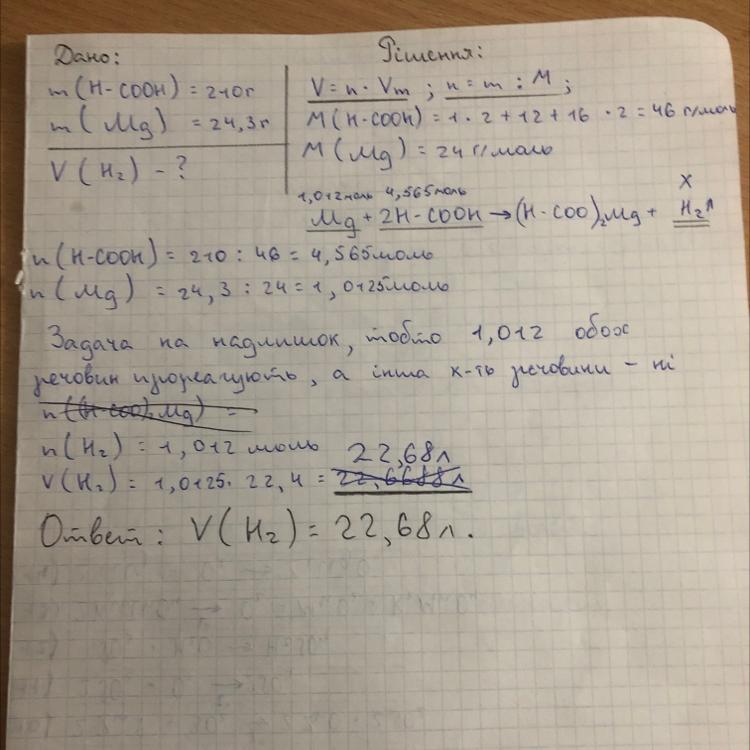 Дано:
Рішення:
m(H-COOH) = 210г
m(Mg) = 24,3г
V(H₂) - ?
V = n · Vm ; n = m : M ;
M(H-COOH) = 1 · 2 + 12 + 16 · 2 = 46 г/моль
M(Mg) = 24 г/моль
1,012моль 4,565моль x
Mg + 2H-COOH → (H-COO)₂Mg + H₂↑
n(H-COOH) = 210 : 46 = 4,565моль
n(Mg) = 24,3 : 24 = 1,0125моль
Задача на надлишок, тобто 1,012 обох
речовин прореагують, а інша к-ть речовини - ні
n((H-COO)₂Mg) =
n(H₂) = 1,012 моль
22,68л
V(H₂) = 1,0125 · 22,4 = 22,6688л
Ответ: V(H₂) = 22,68л.